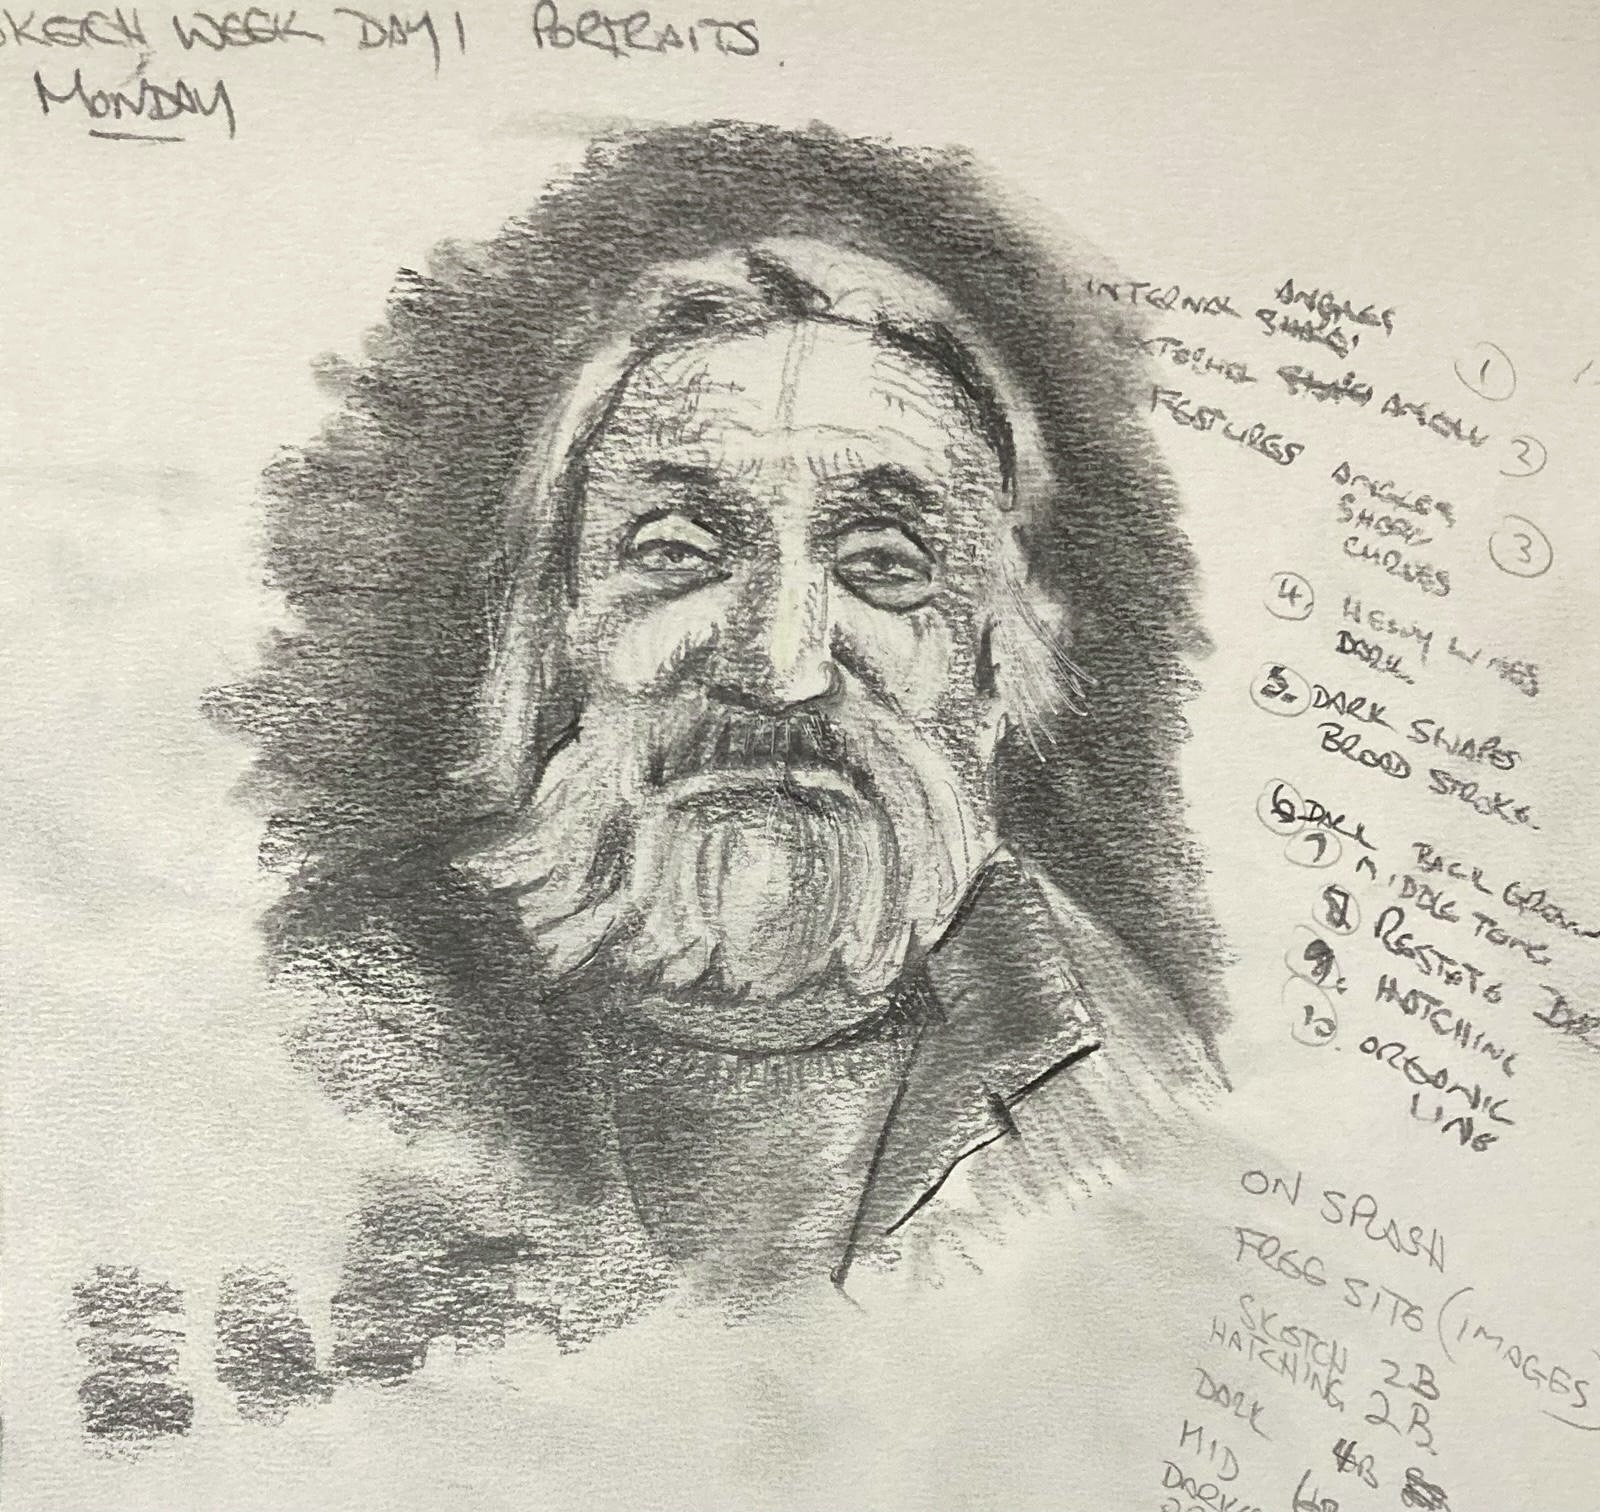 SKETCH WEEK DAY 1 PORTRAITS.
MONDAY
INTERNAL ANGLES
①
ANGLES ②
FEATURES ANGLES
SHAPES
CURVES ③
④ HEAVY LINES
DARK.
5. DARK SHAPES
BROAD STROKE.
6 DARK BACK GROUND
7 MIDDLE TONE
8 RESTATE
9. HATCHING
10. ORGANIC
LINE
ON SPLASH
FREE SITE (IMAGES)
SKETCH 2B
HATCHING 2B
DARK
MID 6B